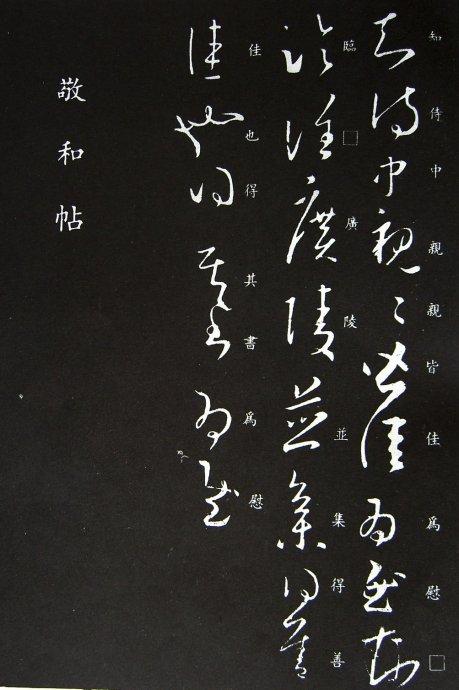 知侍中親親皆佳爲慰□
臨□廣陵並集得善
佳也得其書爲慰
敬和帖